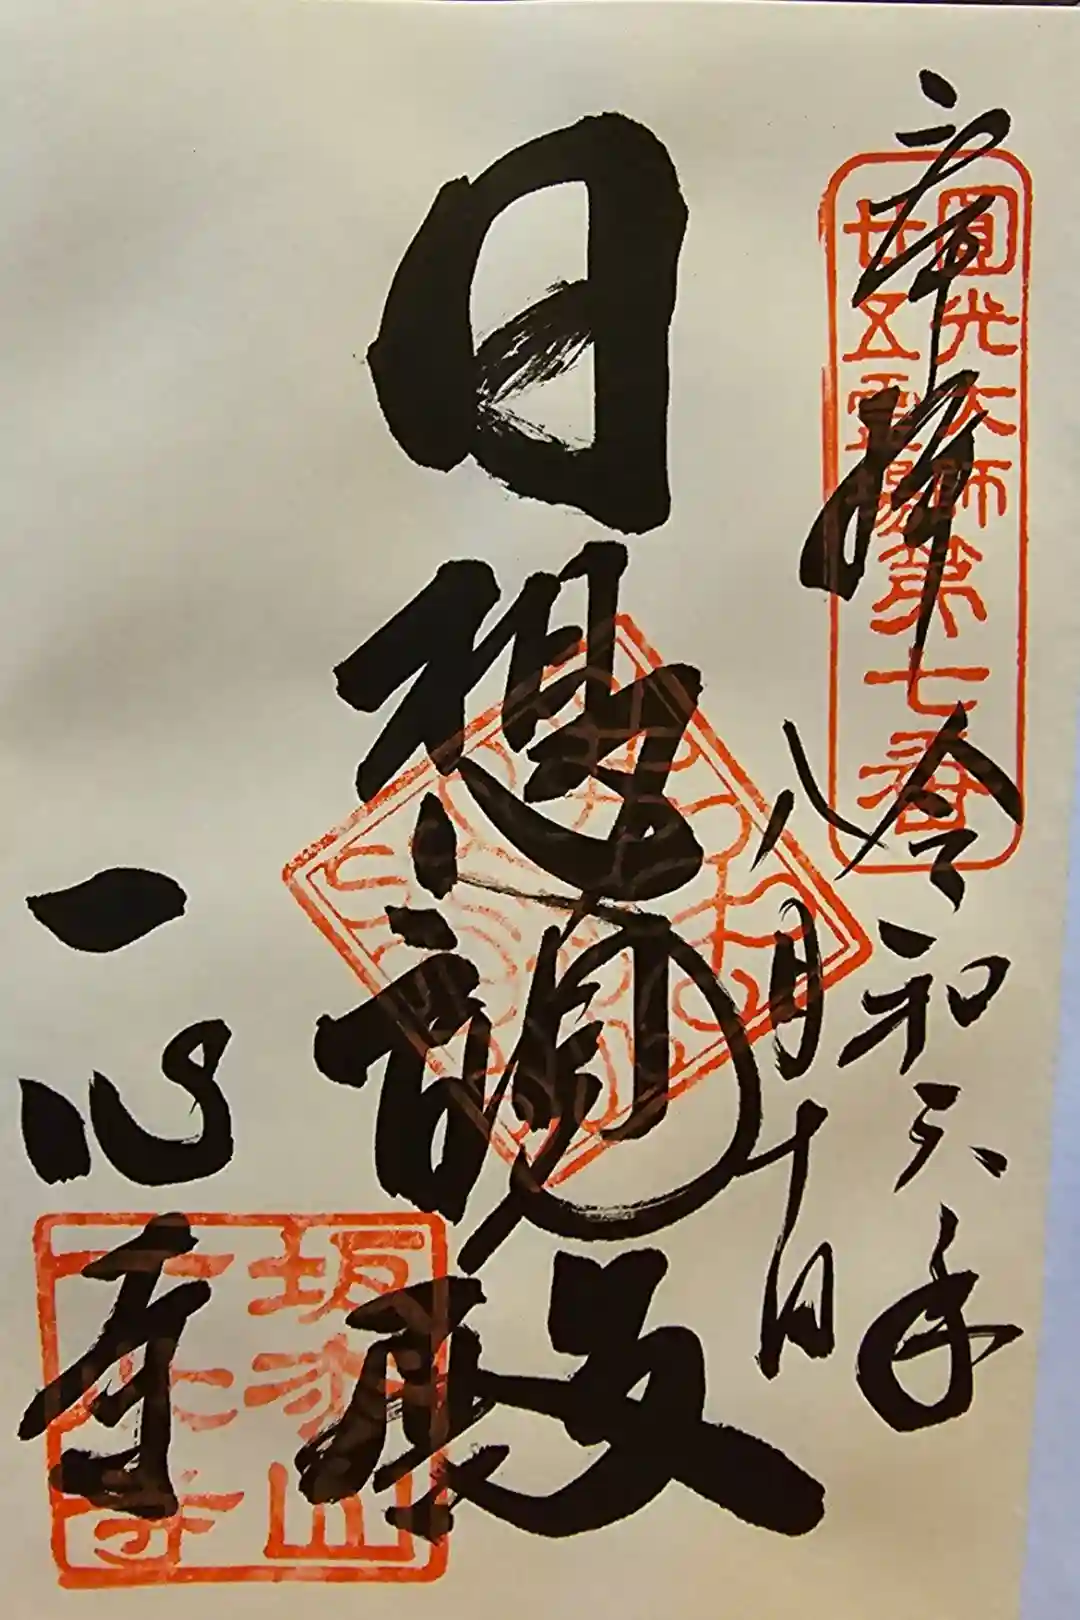 奉拝
圓光大師
廿五霊場
第七番
令和六年
八月十日
日想観殿
一心寺
坂松山
一心寺